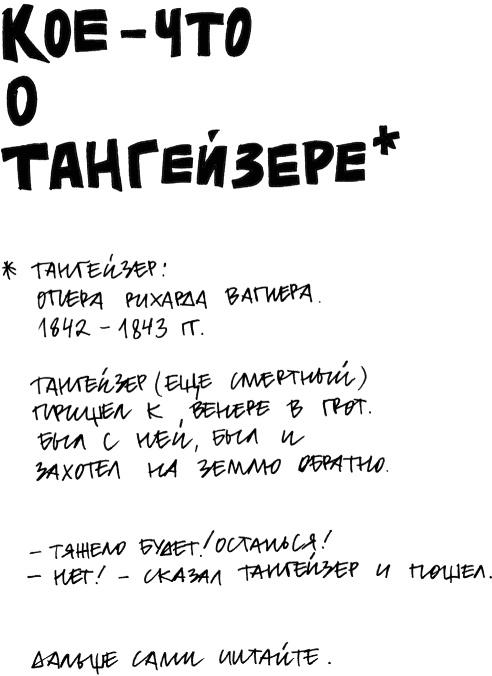 КОЕ-ЧТО
О
ТАНГЕЙЗЕРЕ*
* ТАНГЕЙЗЕР:
ОПЕРА РИХАРДА ВАГНЕРА.
1842 - 1843 ГГ.
ТАНГЕЙЗЕР (ЕЩЕ СМЕРТНЫЙ)
ПРИШЕЛ К ВЕНЕРЕ В ГРОТ.
БЫЛ С НЕЙ, БЫЛ И
ЗАХОТЕЛ НА ЗЕМЛЮ ОБРАТНО.
- ТЯЖЕЛО БУДЕТ! ОСТАНЬСЯ!
- НЕТ! - СКАЗАЛ ТАНГЕЙЗЕР И ПОШЕЛ.
ДАЛЬШЕ САМИ ЧИТАЙТЕ.